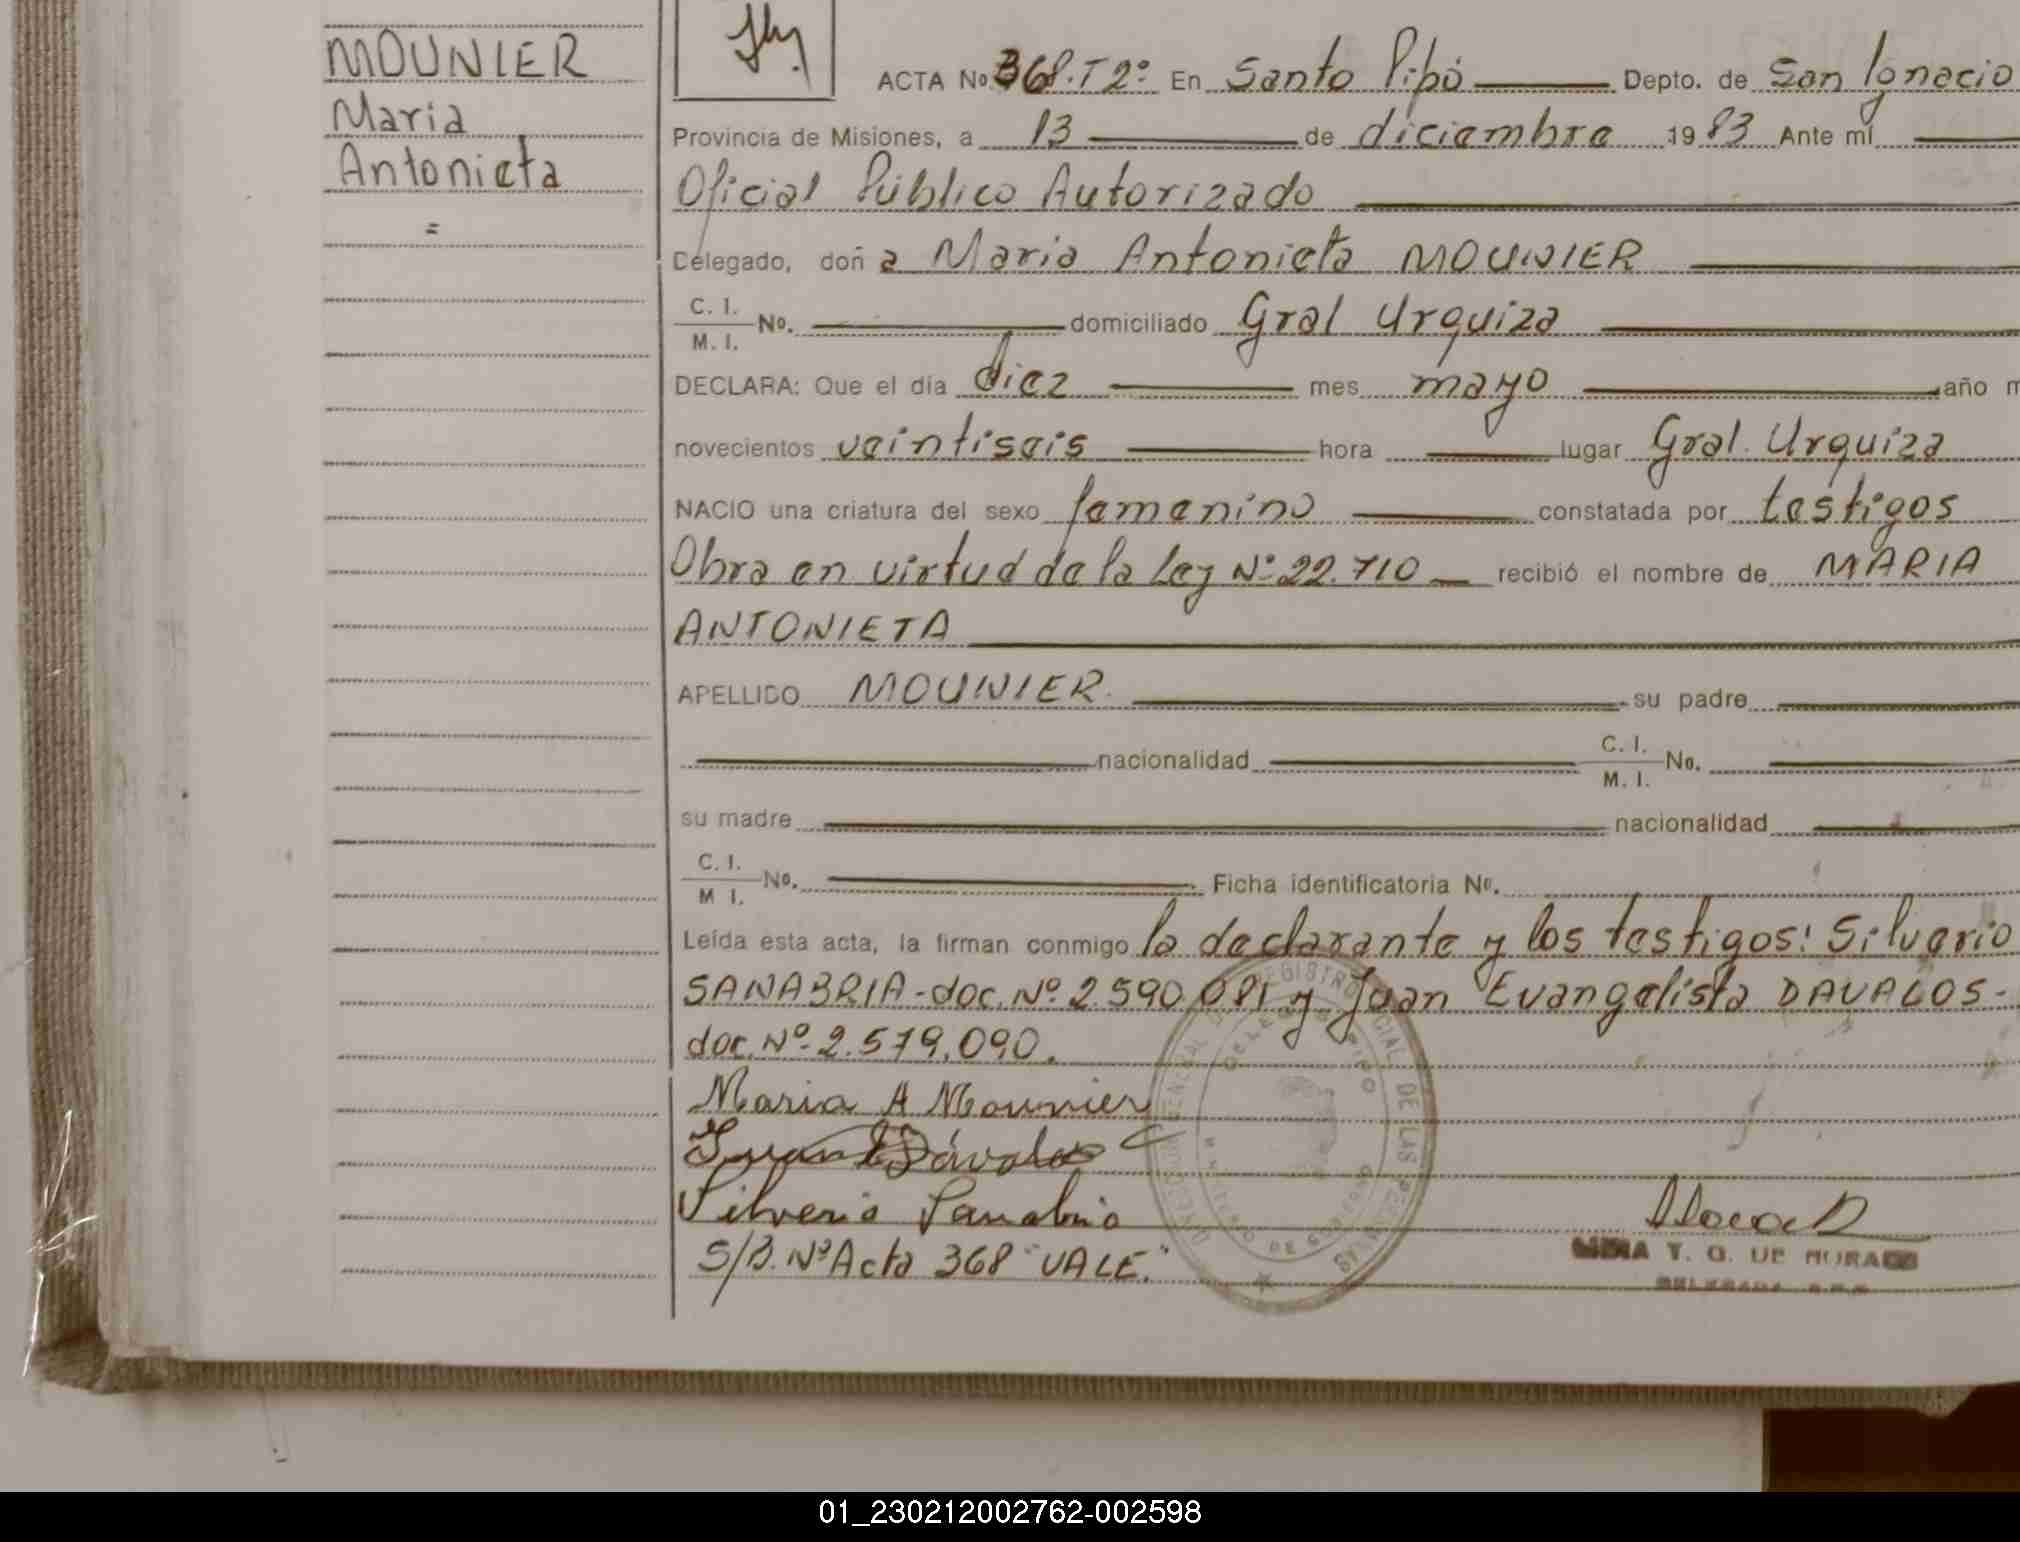 MOUNIER
Maria
Antonieta
=
ACTA No. 368.T2º En Santo Pipó Depto. de San Ignacio
Provincia de Misiones, a 13 de diciembre 1983 Ante mí
Oficial Público Autorizado
Delegado, doña Maria Antonieta MOUNIER
C. I.
M. I. No. domiciliado Gral Urquiza
DECLARA: Que el día diez mes mayo año m
novecientos veintiseis hora lugar Gral. Urquiza
NACIO una criatura del sexo femenino constatada por testigos
Obra en virtud de la Ley Nº 22.710 recibió el nombre de MARIA
ANTONIETA
APELLIDO MOUNIER. su padre
nacionalidad C. I. M. I. No.
su madre nacionalidad
C. I. M I. No. Ficha identificatoria No.
Leída esta acta, la firman conmigo la declarante y los testigos: Silverio
SANABRIA-doc. Nº 2.590.081 y Juan Evangelista DAVALOS-
doc. Nº 2.579.090.
Maria A Mounier
Juan E Dávalos
Silverio Sanabria
S/B. Nº Acta 368 "VALE."
T. G. DE MORA
01_230212002762-002598